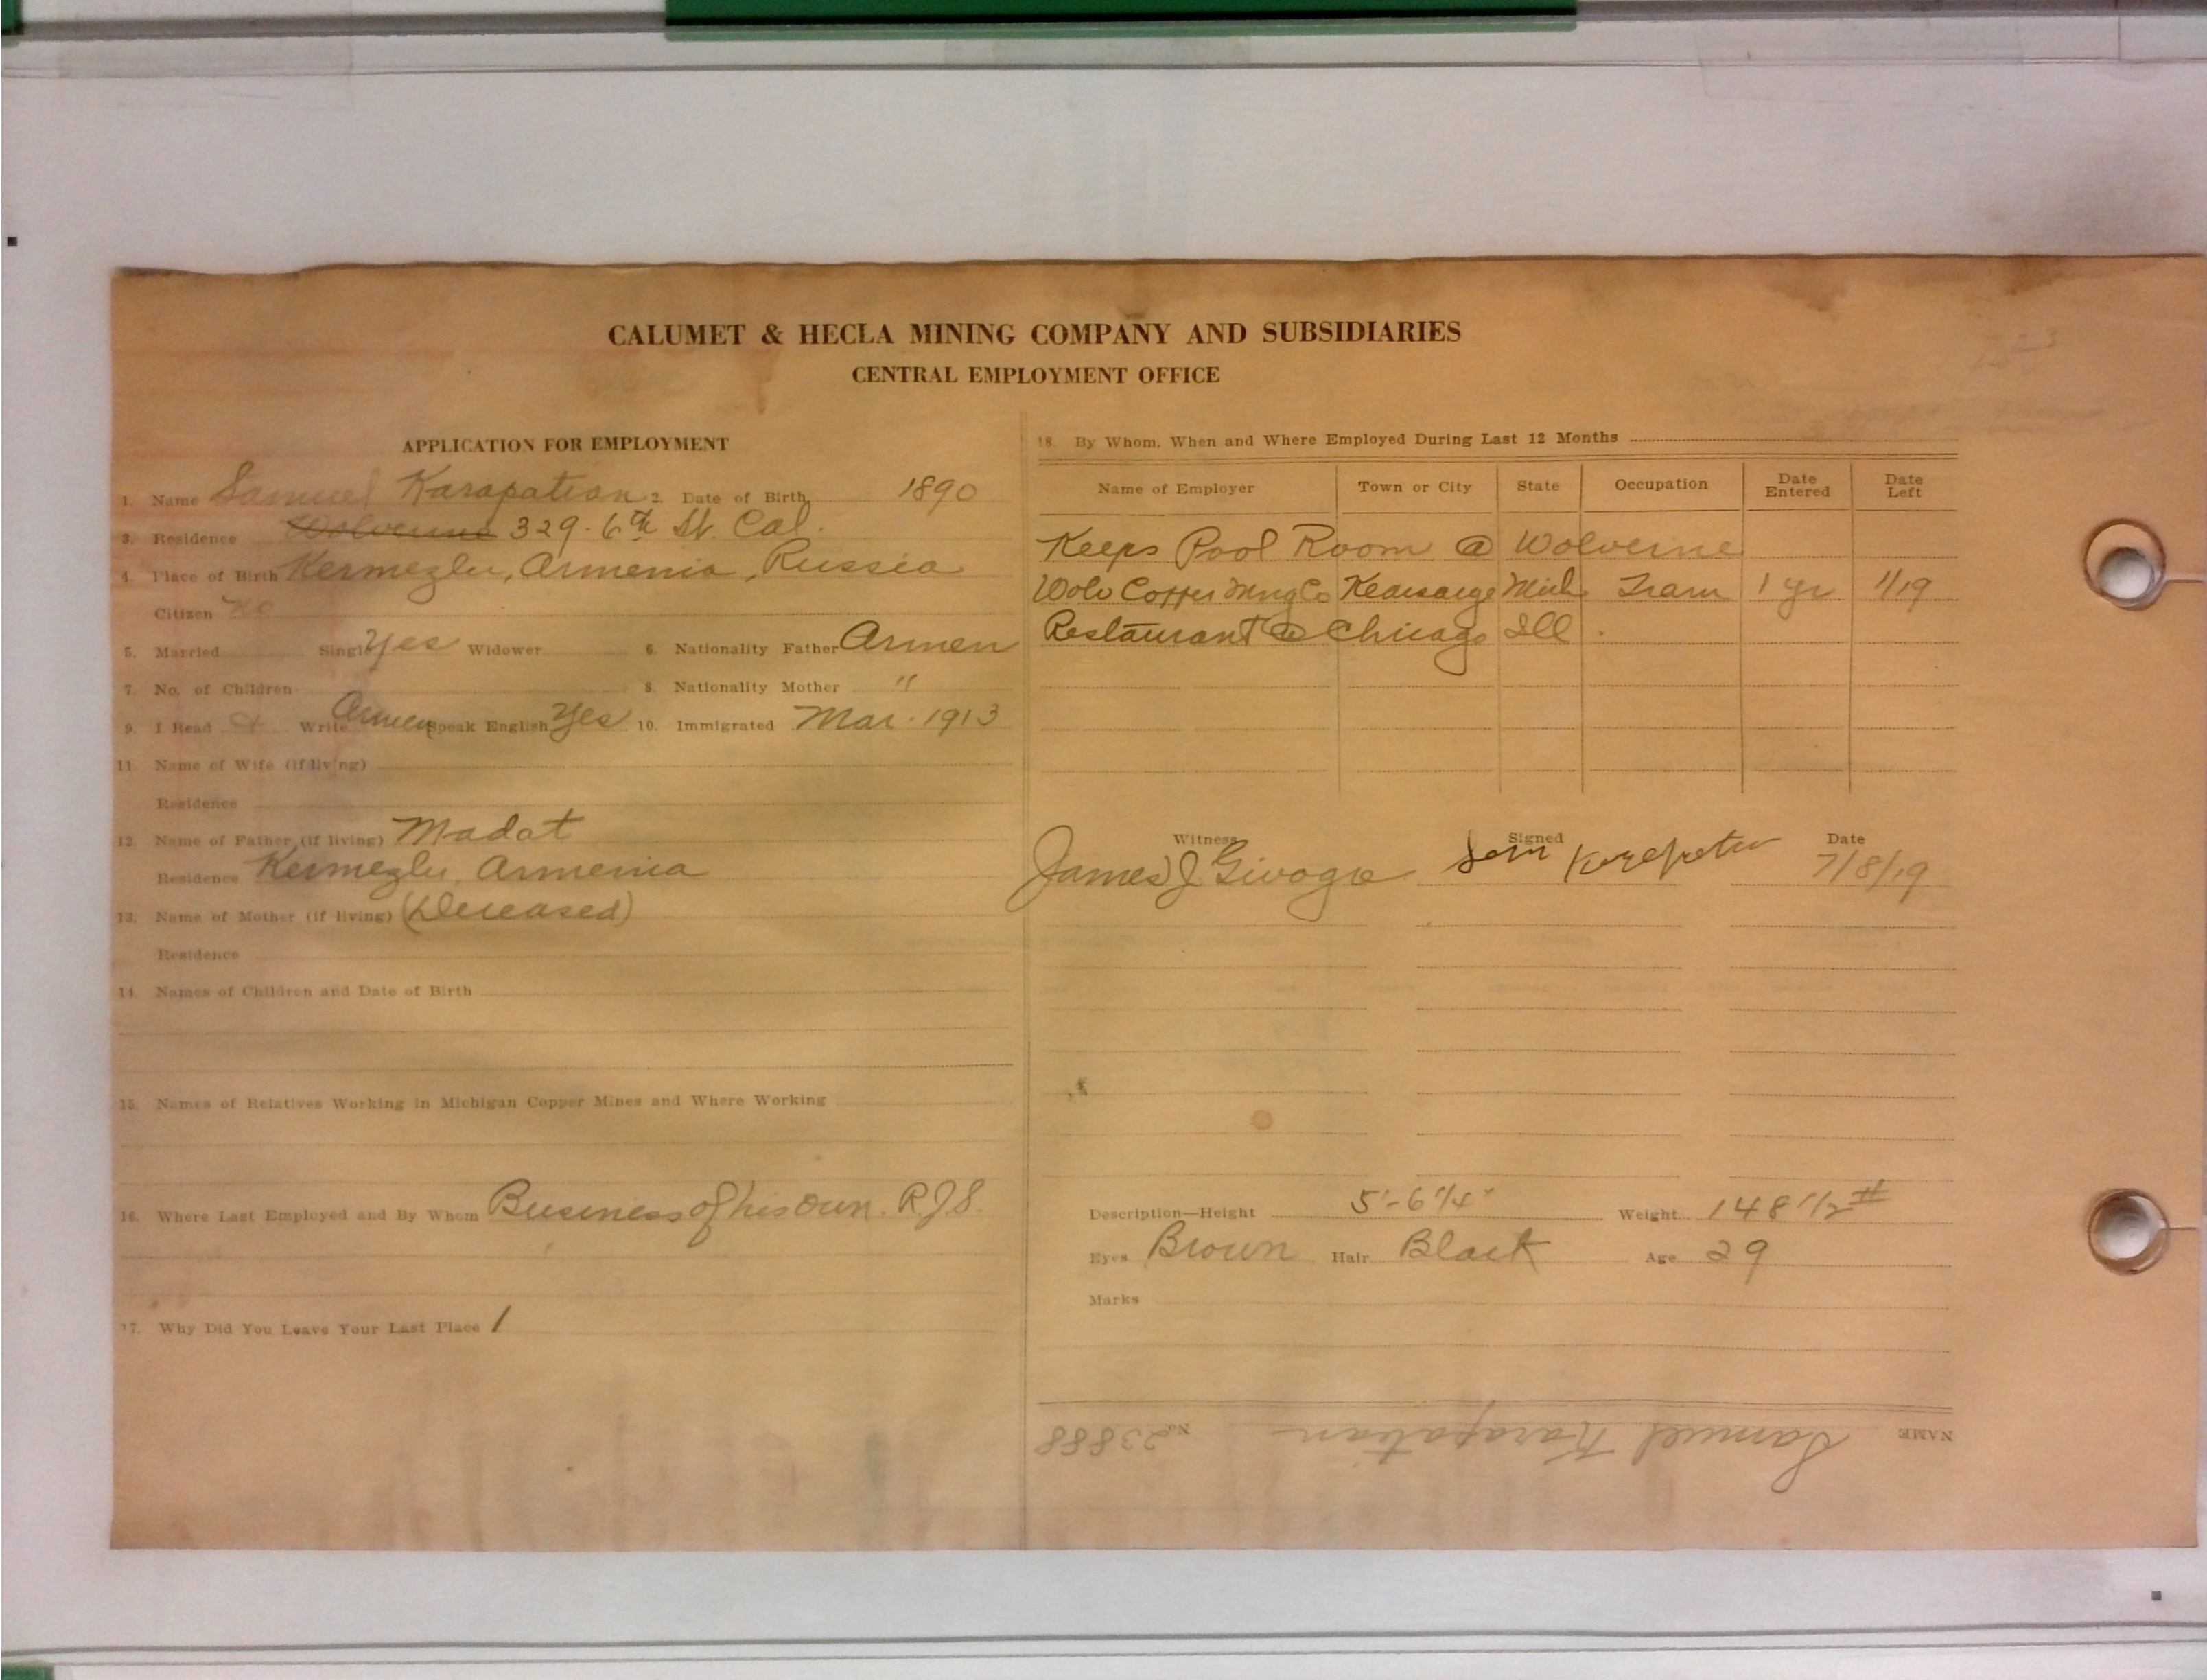 CALUMET & HECLA MINING COMPANY AND SUBSIDIARIES
CENTRAL EMPLOYMENT OFFICE
APPLICATION FOR EMPLOYMENT
1. Name Samuel Karapatian 2. Date of Birth 1890
3. Residence Wolverine 329 - 6th St. Cal.
4. Place of Birth Kermezlu, Armenia, Russia
Citizen No
5. Married Single Yes Widower 6. Nationality Father Armen
7. No. of Children 8. Nationality Mother "
9. I Read & Write Armen Speak English Yes 10. Immigrated Mar. 1913
11. Name of Wife (if living)
Residence
12. Name of Father (if living) Madat
Residence Kermezlu, Armenia
13. Name of Mother (if living) (Deceased)
Residence
14. Names of Children and Date of Birth
15. Names of Relatives Working in Michigan Copper Mines and Where Working
16. Where Last Employed and By Whom Business of his own. R.J.S.
17. Why Did You Leave Your Last Place /
18. By Whom, When and Where Employed During Last 12 Months
Name of Employer Town or City State Occupation Date Entered Date Left
Keeps Pool Room @ Wolverine
Wolv Copper Mng Co Kearsarge Mich Tram 1 yr 1/19
Restaurant @ Chicago Ill.
Witness Signed Date
James J. Sam 7/8/19
Description—Height 5'-6 1/4" Weight 148 1/2 #
Eyes Brown Hair Black Age 29
Marks
NAME Samuel Karapatian No. 23888